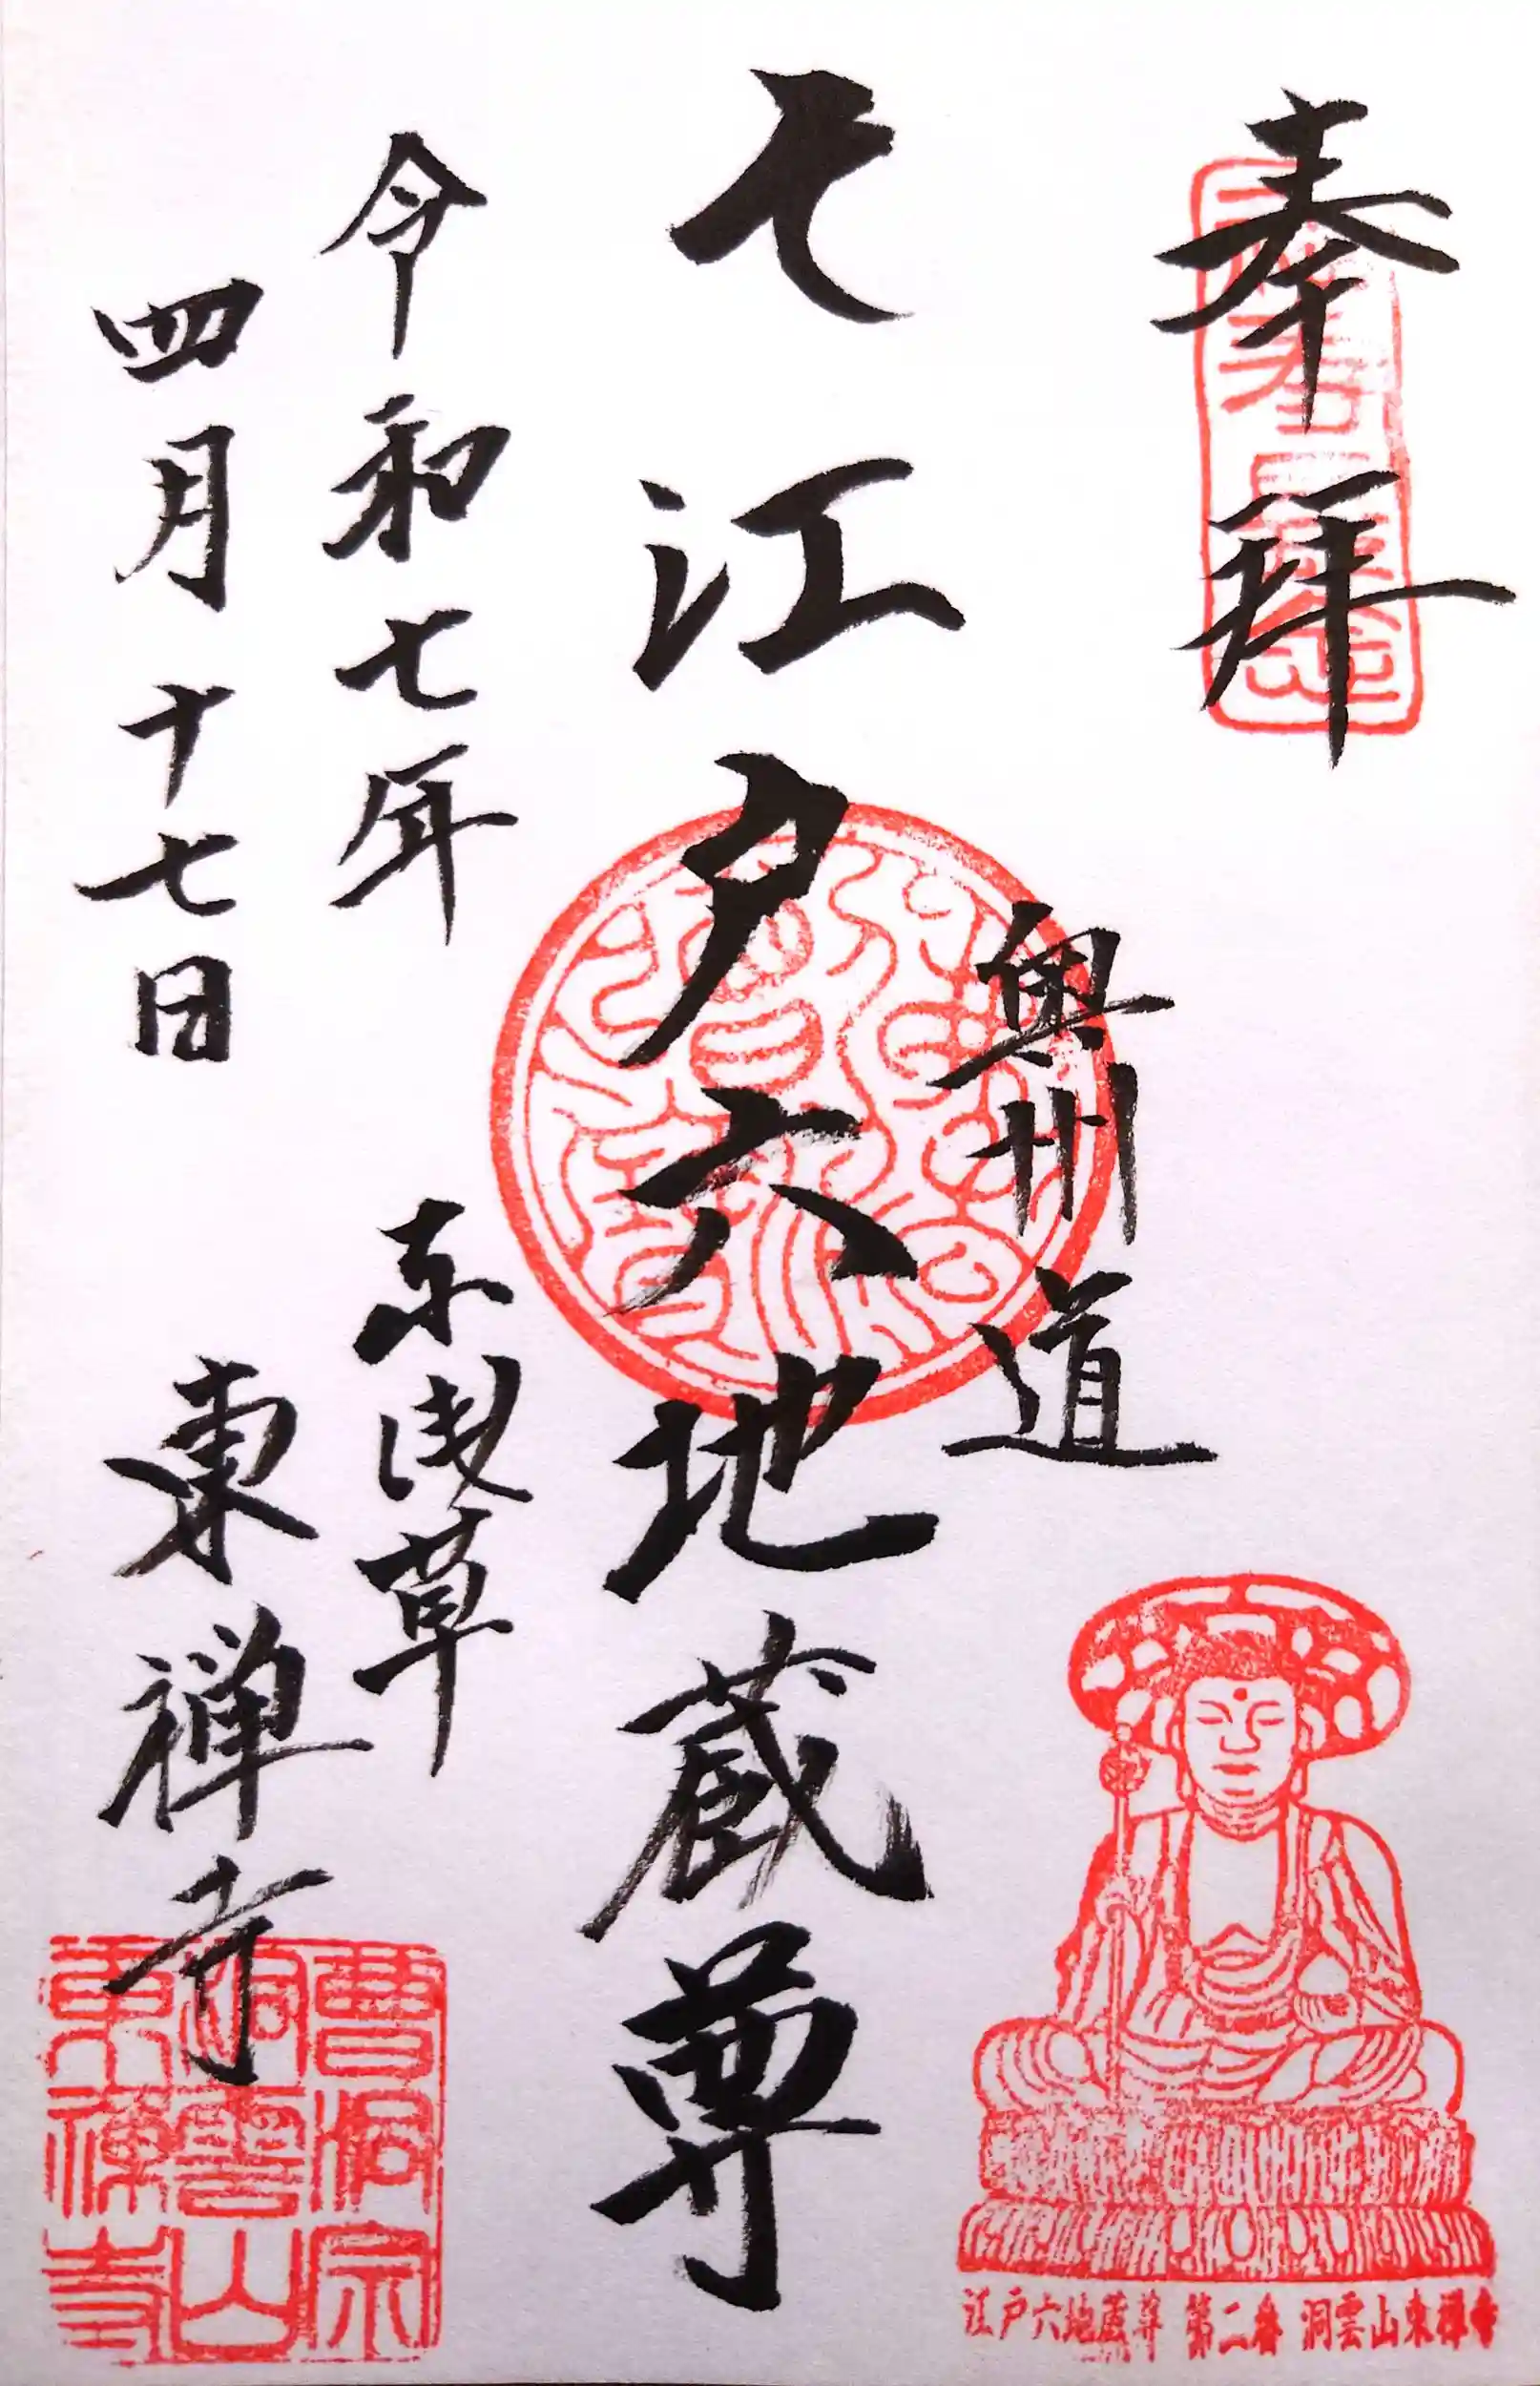 奉拝
奥州道
七江戸六地蔵尊
令和七年
四月十七日
東浅草
東禅寺
曹洞宗
洞雲山
東禅寺
江戸六地蔵尊 第二番 洞雲山東禅寺